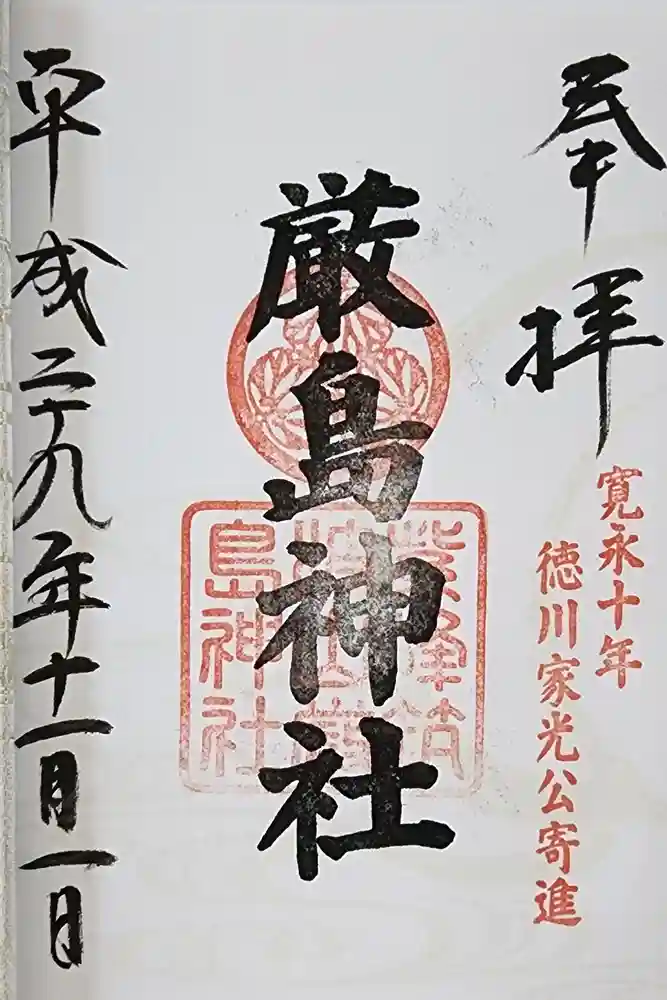 奉拝
寛永十年
徳川家光公寄進
厳島神社
紫峰筑
島神社
平成二十九年十一月一日